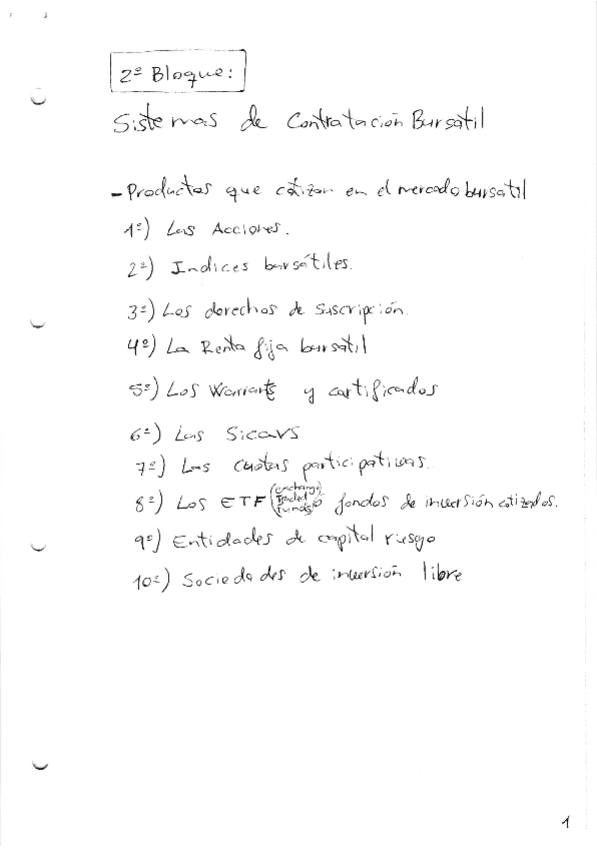 2º Bloque:
Sistemas de Contratación Bursátil
- Productos que cotizan en el mercado bursatil
1º) Las Acciones.
2º) Indices bursátiles.
3º) Los derechos de suscripción.
4º) La Renta fija bursatil
5º) Los Warrants y certificados
6º) Las Sicavs
7º) Las cuotas participativas.
8º) Los ETF (exchange traded funds) ó fondos de inversión cotizados.
9º) Entidades de capital riesgo
10º) Sociedades de inversión libre
1